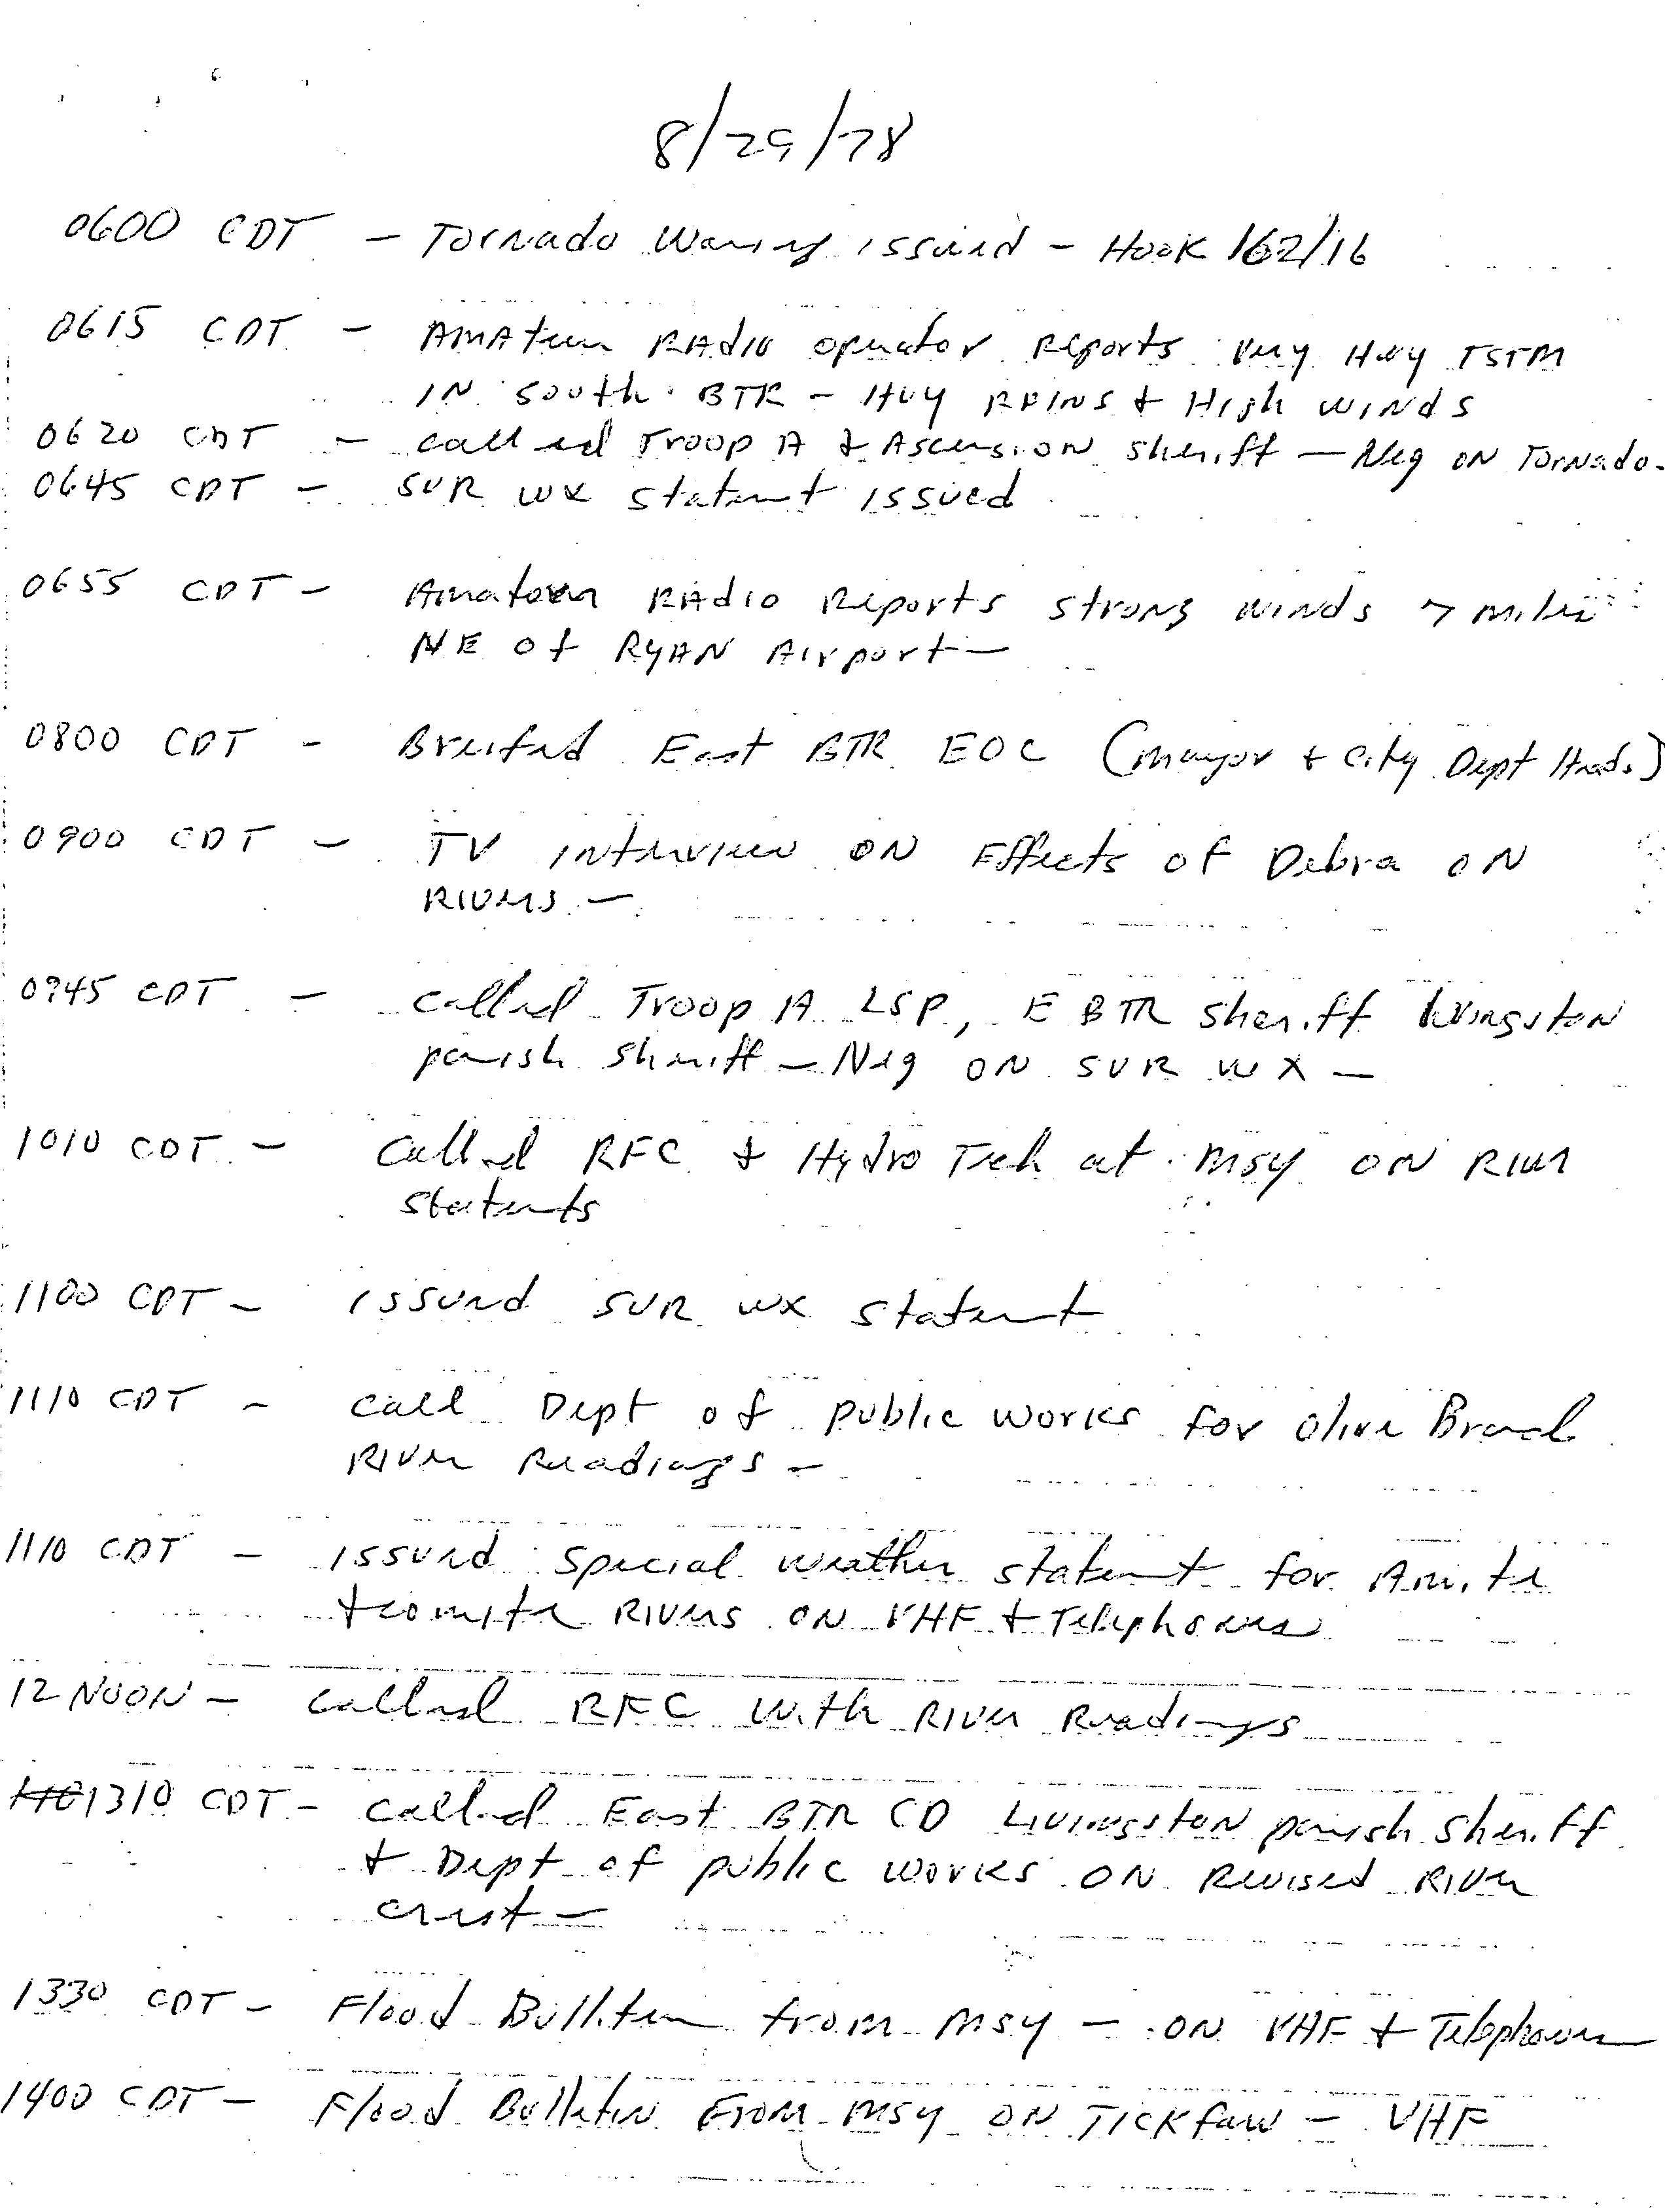 8/29/78
0600 CDT - Tornado Warning issued - Hook 162/16
0615 CDT - Amateur Radio operator Reports very Hvy TSTM
IN South BTR - Hvy RAINS & High WINDS
0620 CDT - called Troop A & Ascension Sheriff - Neg ON Tornado.
0645 CDT - SVR WX Statement issued
0655 CDT - Amateur RAdio Reports strong winds 7 miles
NE of RYAN Airport -
0800 CDT - Breifed East BTR EOC (Mayor & City Dept Heads)
0900 CDT - TV interview ON Effects of Debra ON
Rivers -
0945 CDT - called Troop A LSP, E BTR Sheriff Livingston
parish Sheriff - Neg ON SVR WX -
1010 CDT - Called RFC & Hydro Tech at MSY ON River
Statements
1100 CDT - issued SVR WX Statement
1110 CDT - call Dept of public works for Olive Branch
River Readings -
1110 CDT - issued special weather statement for Amite
& comite Rivers ON VHF & Telephones
12 NOON - called RFC with River Readings
1310 CDT - called East BTR CD Livingston parish Sheriff
& Dept of public works ON Revised River
crest -
1330 CDT - Flood Bulletin from MSY - ON VHF & Telephones
1400 CDT - Flood Bulletin From MSY ON Tickfaw - VHF